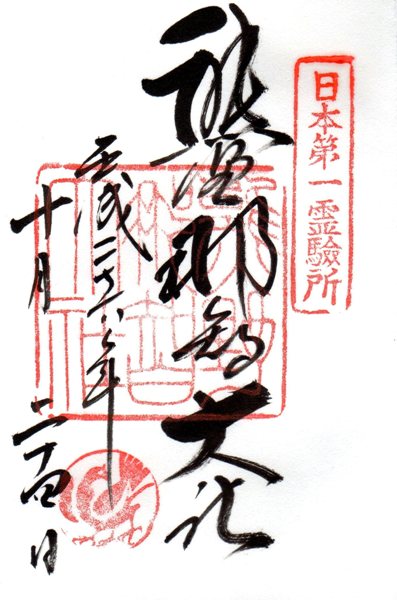 日本第一霊驗所
熊野那智大社
平成二十六年
十月二十四日